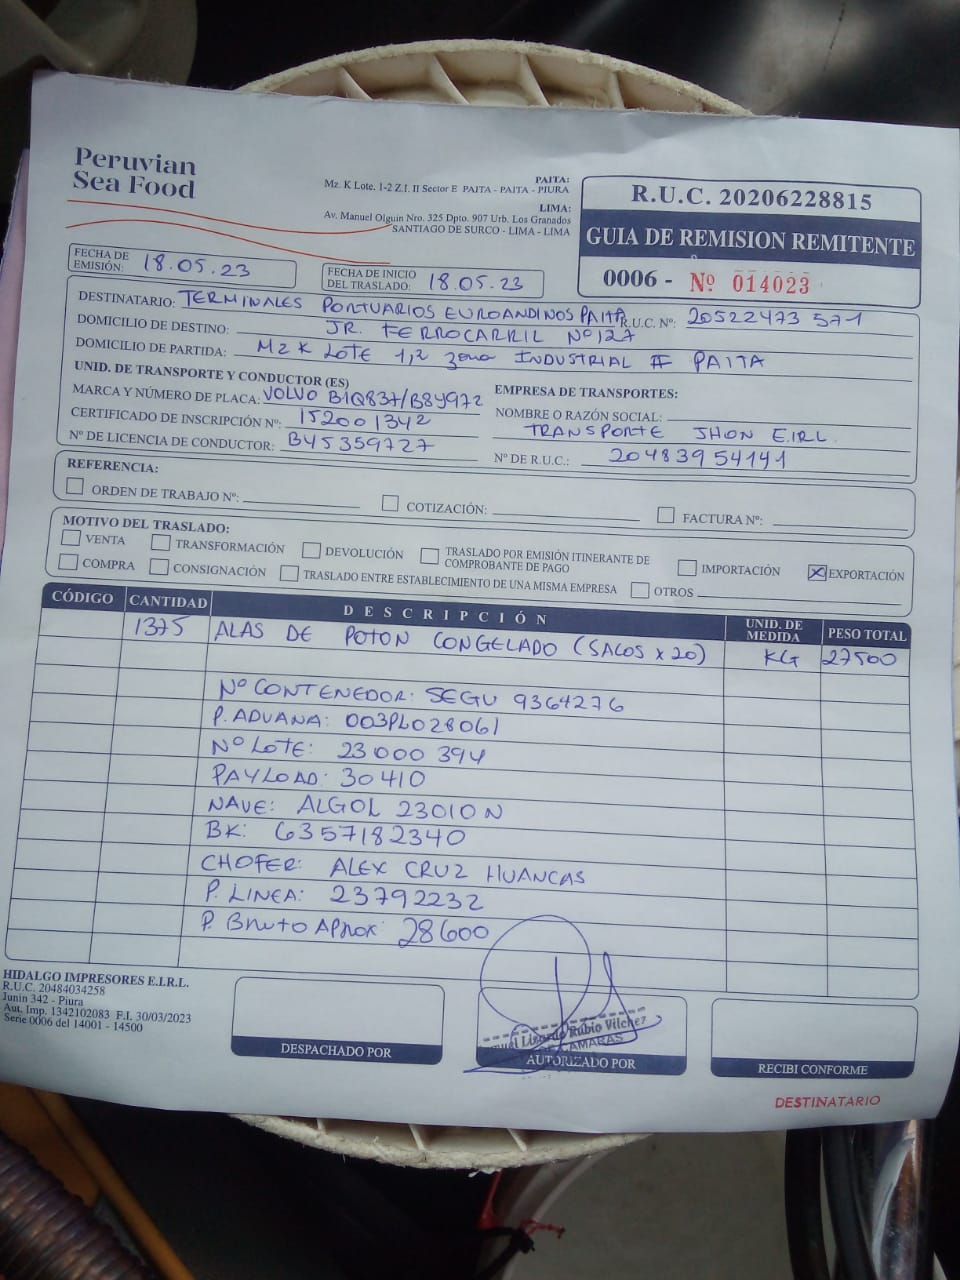 Peruvian
Sea Food
PAITA:
Mz. K Lote. 1-2 Z.I. II Sector E PAITA - PAITA - PIURA
LIMA:
Av. Manuel Olguin Nro. 325 Dpto. 907 Urb. Los Granados
SANTIAGO DE SURCO - LIMA - LIMA
R.U.C. 20206228815
GUIA DE REMISION REMITENTE
0006 - Nº 014023
FECHA DE EMISIÓN: 18.05.23
FECHA DE INICIO DEL TRASLADO: 18.05.23
DESTINATARIO: TERMINALES PORTUARIOS EUROANDINOS PAITA R.U.C. Nº: 20522473571
DOMICILIO DE DESTINO: JR. FERROCARRIL Nº 127
DOMICILIO DE PARTIDA: MZ K LOTE 1,2 zona INDUSTRIAL II PAITA
UNID. DE TRANSPORTE Y CONDUCTOR (ES)
MARCA Y NÚMERO DE PLACA: VOLVO B1Q837/B8Y972
CERTIFICADO DE INSCRIPCIÓN Nº: 152001342
Nº DE LICENCIA DE CONDUCTOR: B45359727
EMPRESA DE TRANSPORTES:
NOMBRE O RAZÓN SOCIAL:
TRANSPORTE JHON E.I.R.L.
Nº DE R.U.C.: 20483954141
REFERENCIA:
ORDEN DE TRABAJO Nº:
COTIZACIÓN:
FACTURA Nº:
MOTIVO DEL TRASLADO:
VENTA
TRANSFORMACIÓN
DEVOLUCIÓN
TRASLADO POR EMISIÓN ITINERANTE DE COMPROBANTE DE PAGO
IMPORTACIÓN
X EXPORTACIÓN
COMPRA
CONSIGNACIÓN
TRASLADO ENTRE ESTABLECIMIENTO DE UNA MISMA EMPRESA
OTROS
CÓDIGO CANTIDAD DESCRIPCIÓN UNID. DE MEDIDA PESO TOTAL
1375 ALAS DE POTON CONGELADO (SACOS x 20) KG 27500
Nº CONTENEDOR: SEGU 9364276
P. ADUANA: 003PL028061
Nº LOTE: 23000394
PAYLOAD: 30410
NAVE: ALGOL 23010N
BK: 6357182340
CHOFER: ALEX CRUZ HUANCAS
P. LINEA: 23792232
P. Bruto Aprox: 28600
HIDALGO IMPRESORES E.I.R.L.
R.U.C. 20484034258
Junin 342 - Piura
Aut. Imp. 1342102083 F.I. 30/03/2023
Serie 0006 del 14001 - 14500
DESPACHADO POR
Lizardo Rubio Vilchez
CAMARAS
AUTORIZADO POR
RECIBI CONFORME
DESTINATARIO